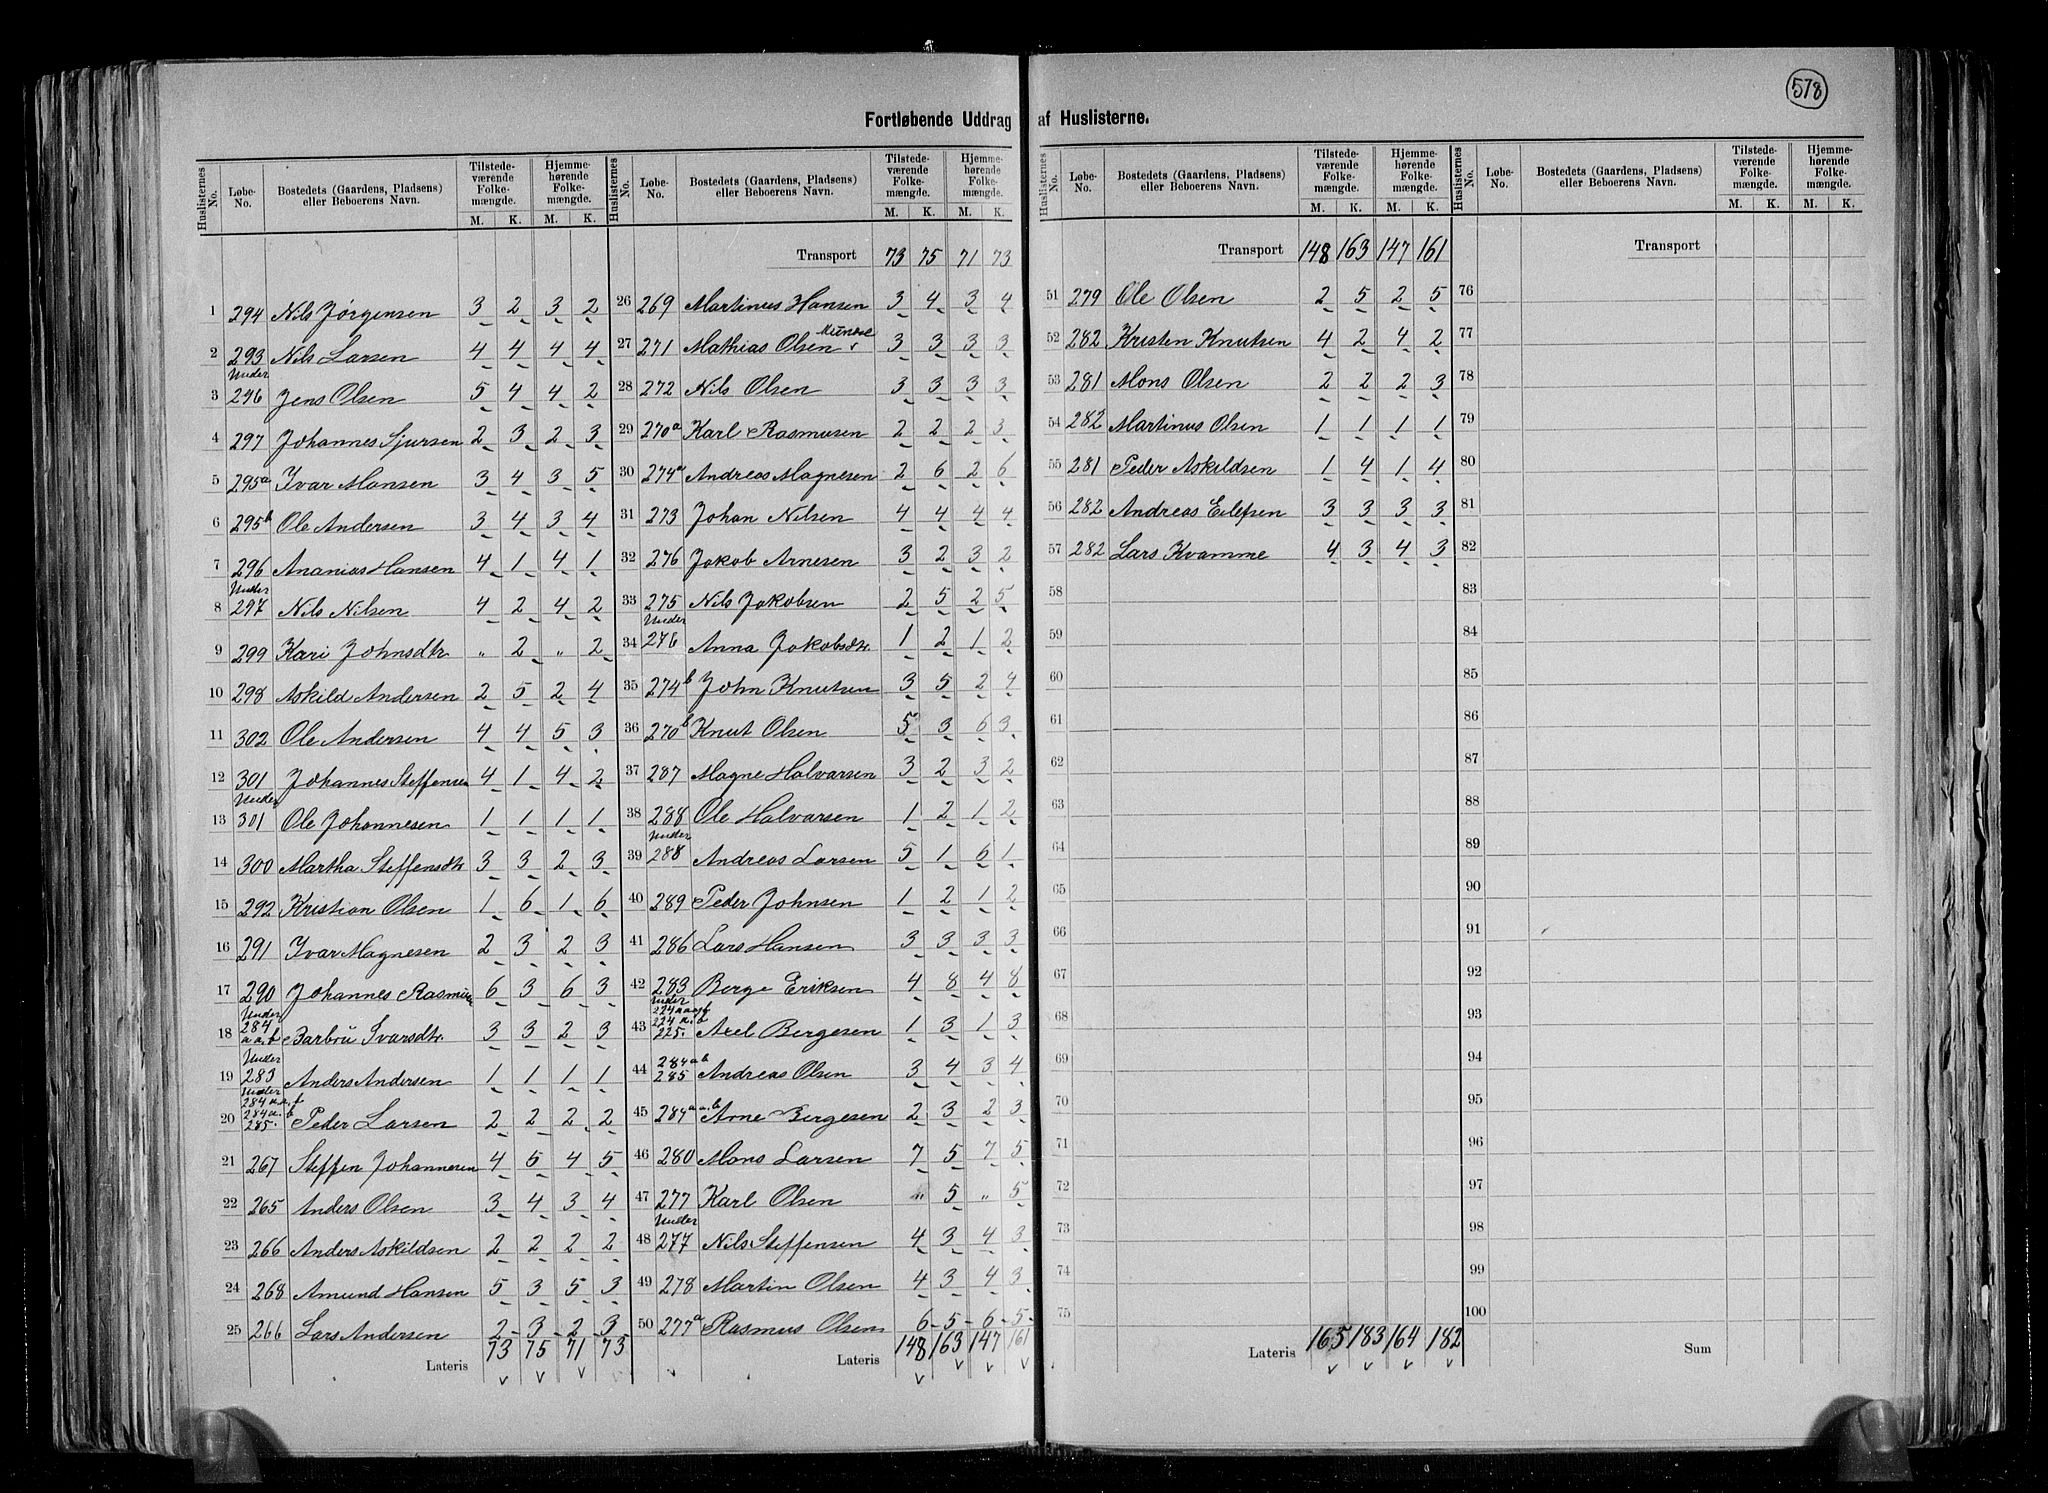 578
Fortløbende Uddrag af Huslisterne.
Huslisternes No. Løbe-No. Bostedets (Gaardens, Pladsens) eller Beboerens Navn. Tilstedeværende Folkemængde. M. K. Hjemmehørende Folkemængde. M. K.
1 294 Nils Jørgensen 3 2 3 2
2 293 Nils Larsen 4 4 4 4
3 Under 296 Jens Olsen 5 4 4 2
4 297 Johannes Sjursen 2 3 2 3
5 295a Ivar Monsen 3 4 3 5
6 295b Ole Andersen 3 4 3 4
7 296 Ananias Hansen 4 1 4 1
8 Under 297 Nils Nilsen 4 2 4 2
9 299 Kari Johnsdtr. " 2 " 2
10 298 Askild Andersen 2 5 2 4
11 302 Ole Andersen 4 4 5 3
12 301 Johannes Steffensen 4 1 4 2
13 Under 301 Ole Johannesen 1 1 1 1
14 300 Martha Steffensdtr 3 3 2 3
15 292 Kristian Olsen 1 6 1 6
16 291 Ivar Magnesen 2 3 2 3
17 290 Johannes Rasmusen 6 3 6 3
18 Under 284 a a.b Barbrü Ivarsdtr. 3 3 2 3
19 Under 283 Anders Andersen 1 1 1 1
20 Under 284 a.a.b 284 a. b 285. Peder Larsen 2 2 2 2
21 267 Steffen Johannesen 4 5 4 5
22 265 Anders Olsen 3 4 3 4
23 266 Anders Askildsen 2 2 2 2
24 268 Amund Hansen 5 3 5 3
25 266 Lars Andersen 2 3 2 3
Lateris 73 75 71 73
Huslisternes No. Løbe-No. Bostedets (Gaardens, Pladsens) eller Beboerens Navn. Tilstedeværende Folkemængde. M. K. Hjemmehørende Folkemængde. M. K.
Transport 73 75 71 73
26 269 Martinus Hansen 3 4 3 4
27 271 Mathias Olsen 3 3 3 3
28 272 Nils Olsen 3 3 3 3
29 270a Karl Rasmusen 2 2 2 3
30 274a Andreas Magnesen 2 6 2 6
31 273 Johan Nilsen 4 4 4 4
32 276 Jakob Arnesen 3 2 3 2
33 275 Nils Jakobsen 2 5 2 5
34 Under 276 Anna Jakobsdtr. 1 2 1 2
35 274b John Knutsen 3 5 2 4
36 270b Knut Olsen 5 3 6 3
37 287 Magne Halvarsen 3 2 3 2
38 288 Ole Halvarsen 1 2 1 2
39 Under 288 Andreas Larsen 5 1 6 1
40 289 Peder Johnsen 1 2 1 2
41 286 Lars Hansen 3 3 3 3
42 283 Berge Eriksen 4 8 4 8
43 Under 224 a a.b 224 a. b 225. Axel Bergesen 1 3 1 3
44 284 a b 285 Andreas Olsen 3 4 3 4
45 284 a a. b Arne Bergesen 2 3 2 3
46 280 Mons Larsen 7 5 7 5
47 277 Karl Olsen " 5 " 5
48 Under 277 Nils Steffensen 4 3 4 3
49 278 Martin Olsen 4 3 4 3
50 277a Rasmus Olsen 6 5 6 5
Lateris 148 163 147 161
Huslisternes No. Løbe-No. Bostedets (Gaardens, Pladsens) eller Beboerens Navn. Tilstedeværende Folkemængde. M. K. Hjemmehørende Folkemængde. M. K.
Transport 148 163 147 161
51 279 Ole Olsen 2 5 2 5
52 282 Kristen Knutsen 4 2 4 2
53 281 Mons Olsen 2 2 2 3
54 282 Martinus Olsen 1 1 1 1
55 281 Peder Askildsen 1 4 1 4
56 282 Andreas Eilefsen 3 3 3 3
57 282 Lars Kvamme 4 3 4 3
58
59
60
61
62
63
64
65
66
67
68
69
70
71
72
73
74
75
Lateris 165 183 164 182
Huslisternes No. Løbe-No. Bostedets (Gaardens, Pladsens) eller Beboerens Navn. Tilstedeværende Folkemængde. M. K. Hjemmehørende Folkemængde. M. K.
Transport
76
77
78
79
80
81
82
83
84
85
86
87
88
89
90
91
92
93
94
95
96
97
98
99
100
Sum